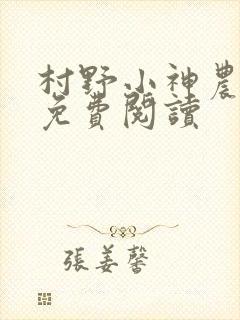 村野小神農
免費閱讀
張姜馨